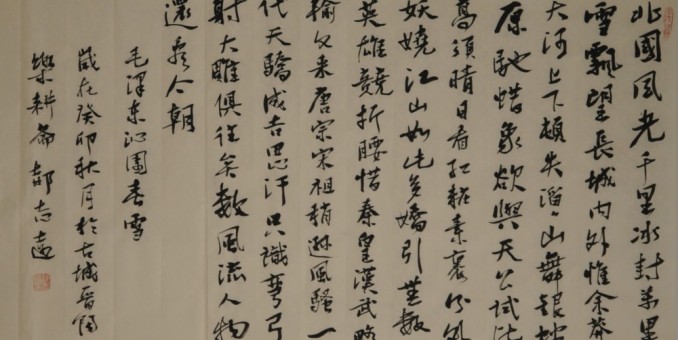 北國風光千里冰封萬里
雪飄望長城內外惟余莽
大河上下頓失滔〻山舞銀蛇
原馳蜡象欲與天公試比
高須晴日看紅粧素裹分外
妖嬈江山如此多嬌引無數
英雄競折腰惜秦皇漢武略
輸文采唐宗宋祖稍遜風騷一
代天驕成吉思汗只識彎弓
射大雕俱往矣數風流人物
還看今朝
毛澤東沁園春雪
歲在癸卯秋月於古城晉陽
樂耕齋志遠